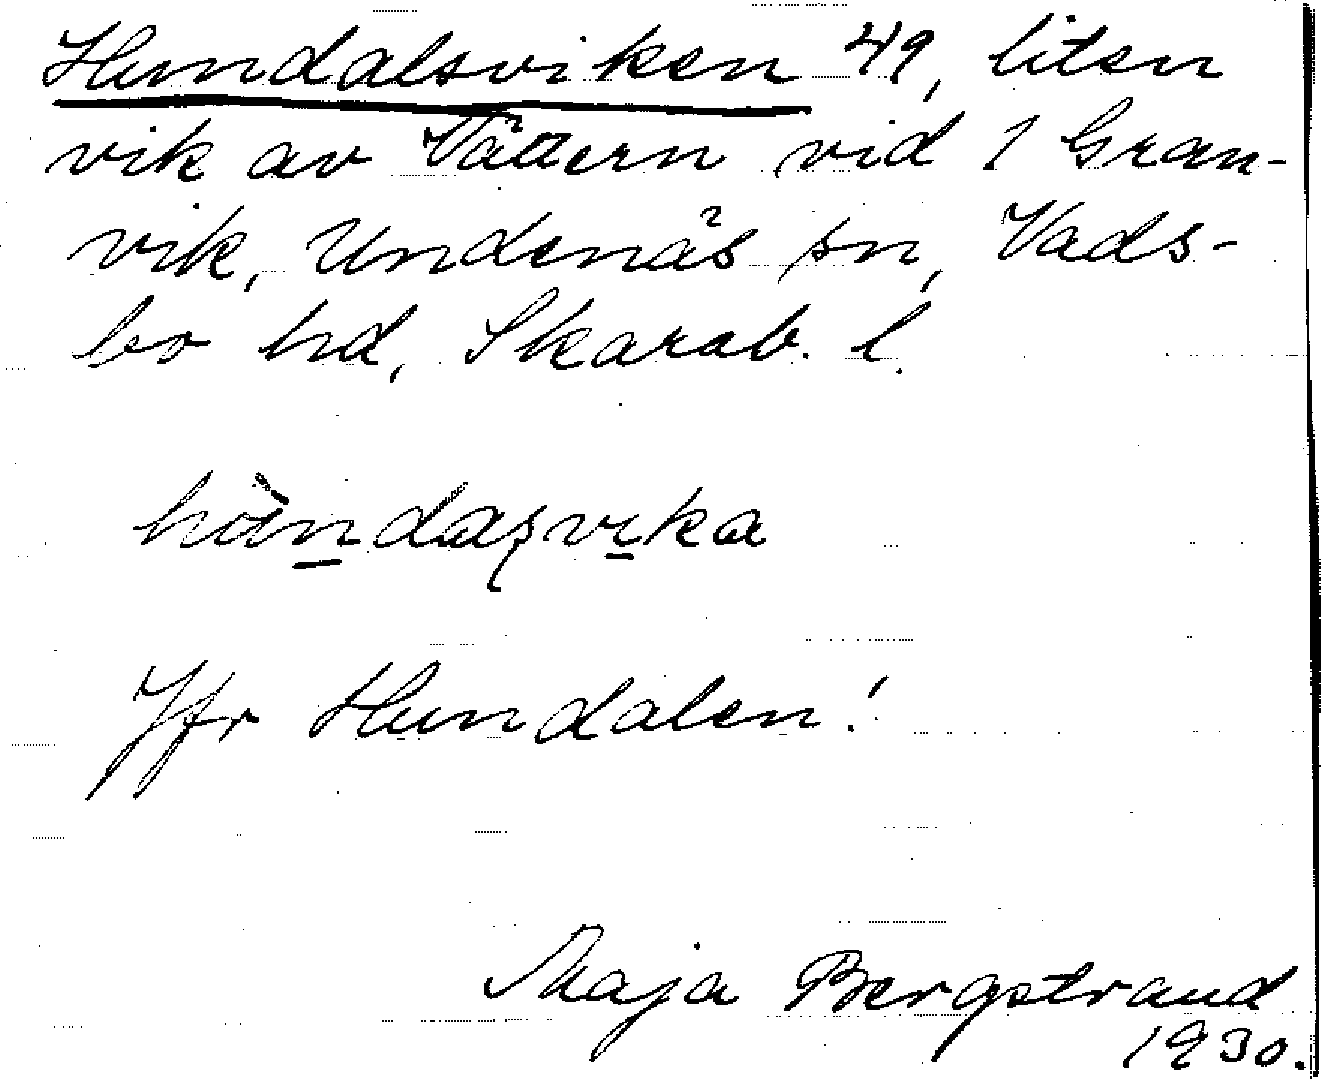 Hundalsviken 49, liten
vik av Vättern vid 1 Gran-
vik, Undenäs sn, Vads-
bo hd, Skarab. l.
Jfr Hundalen!
Maja Bergstrand
1930.